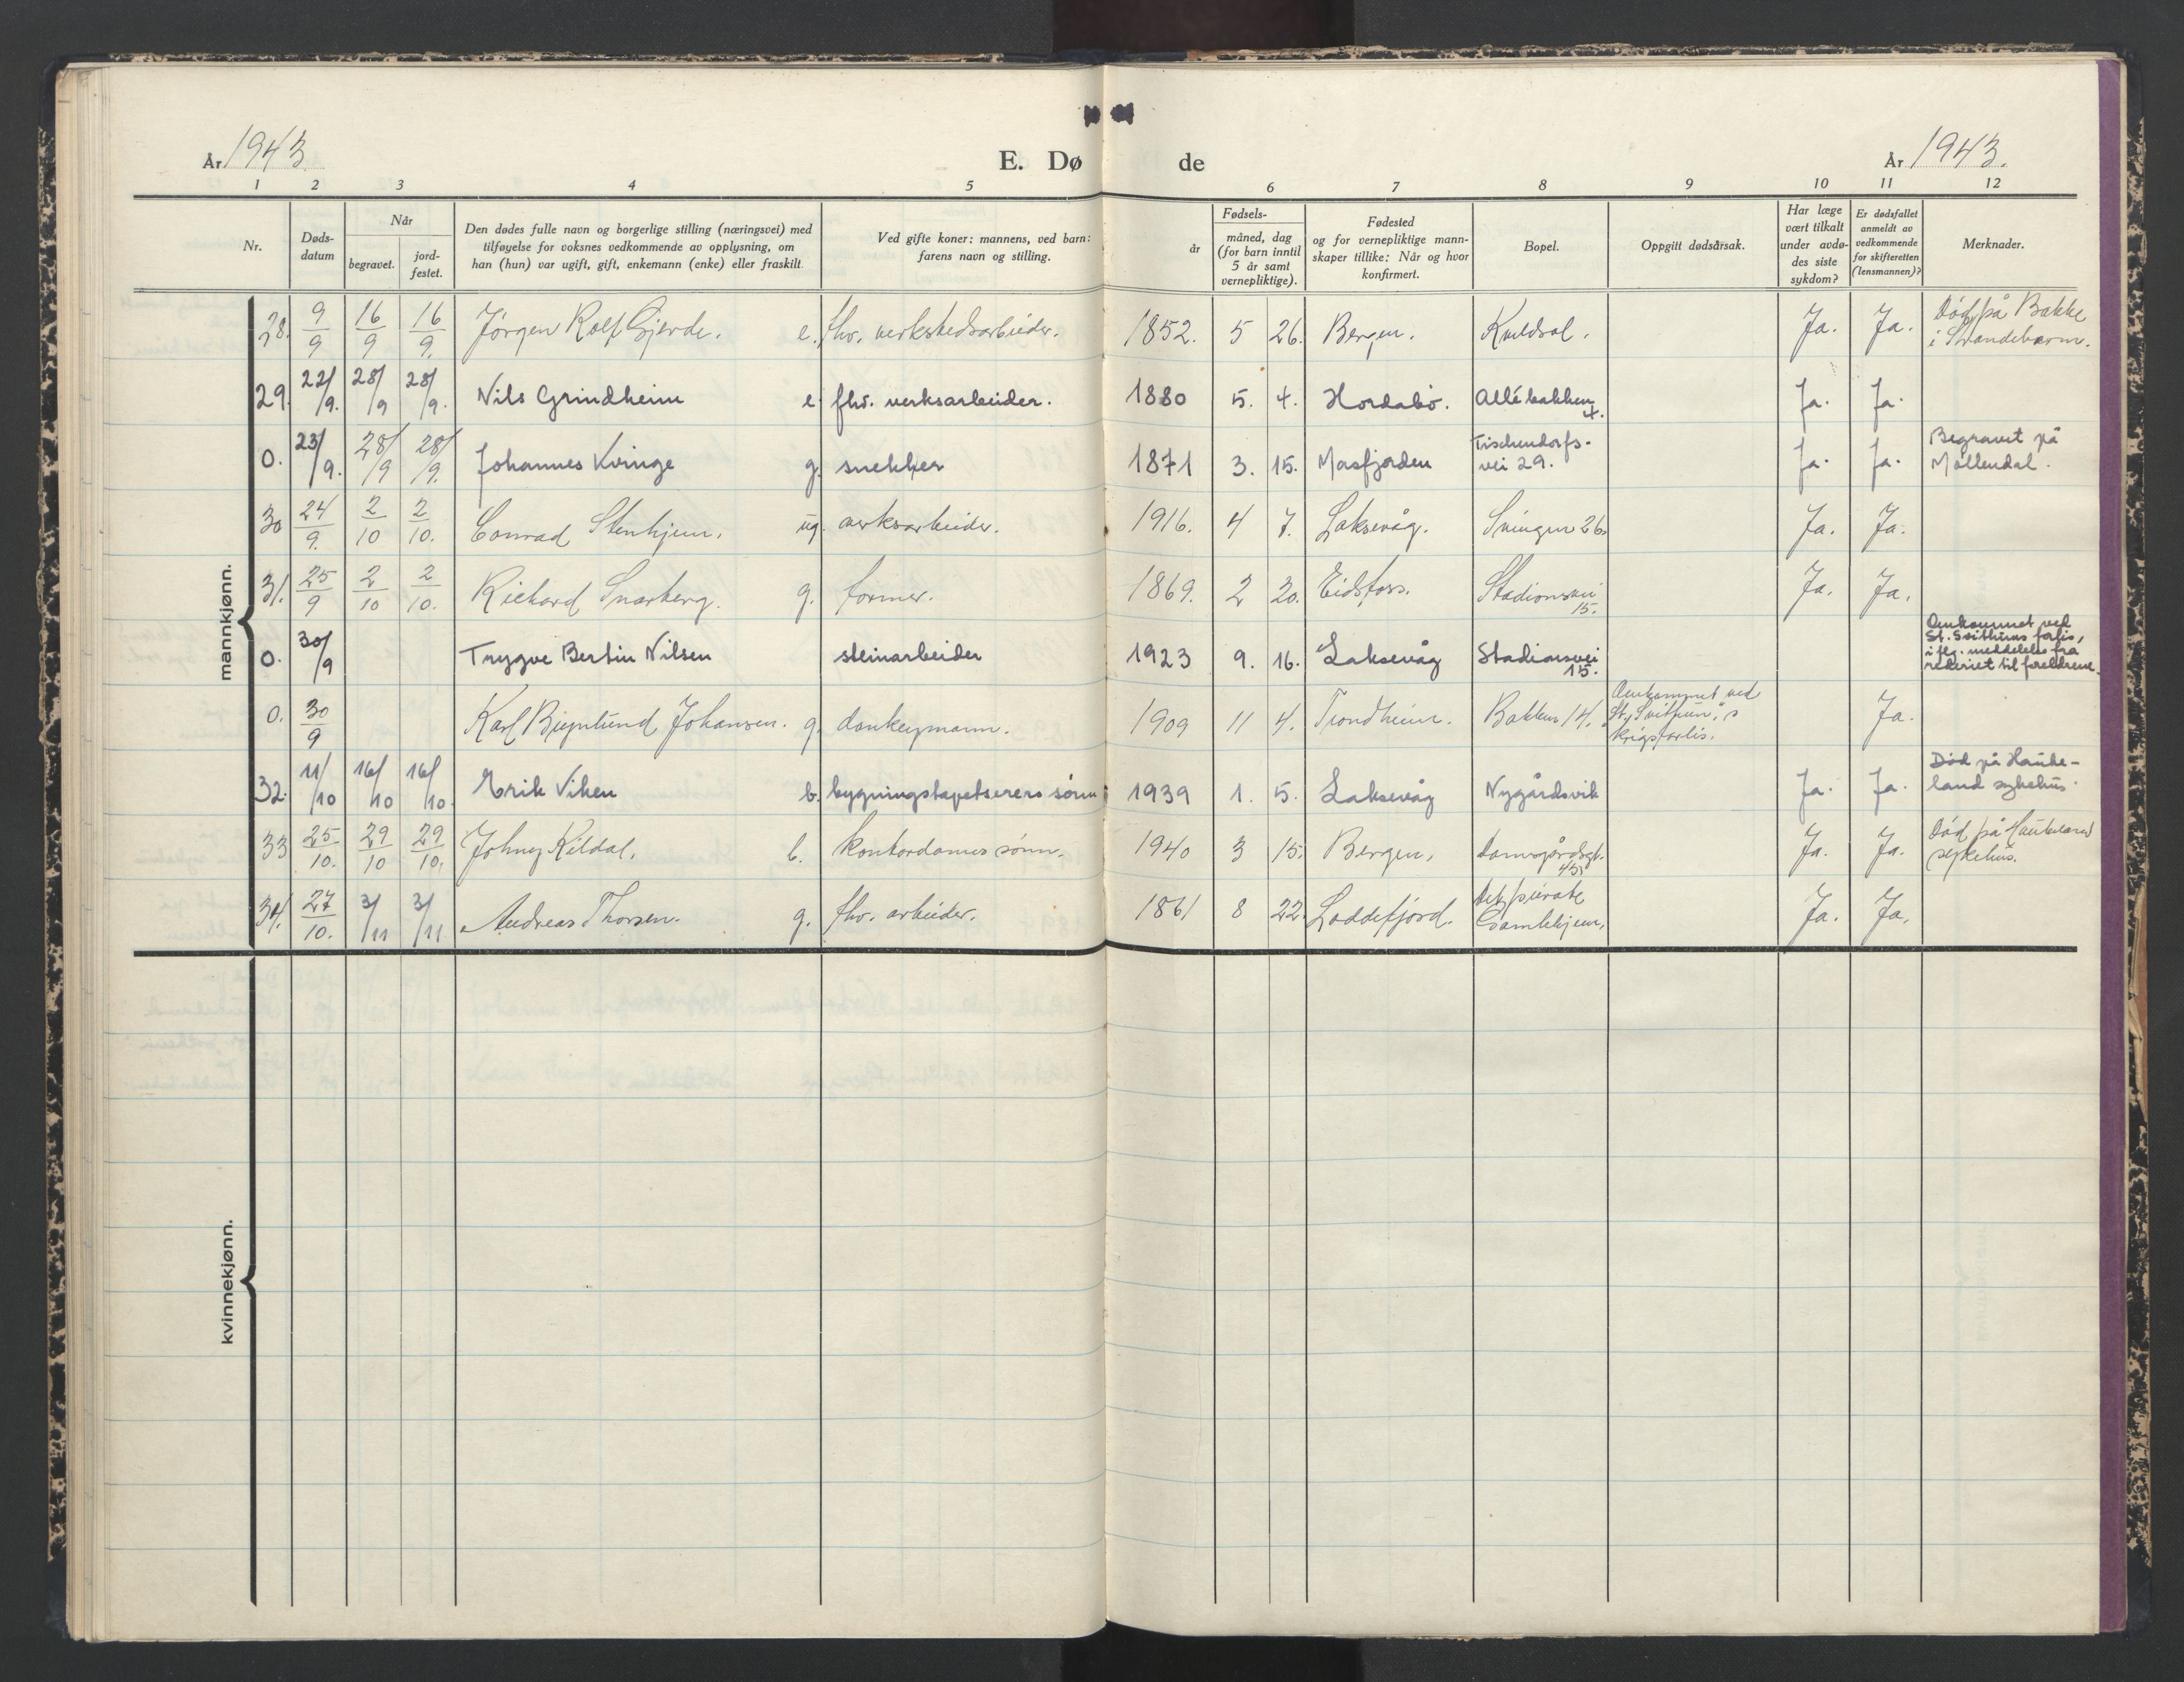 År 1943.
E. Dø de
År 1943.
1 2 3 4 5 6 7 8 9 10 11 12
Nr.
Døds-
datum
Når
begravet.
jord-
festet.
Den dødes fulle navn og borgerlige stilling (næringsvei) med
tilføyelse for voksnes vedkommende av opplysning, om
han (hun) var ugift, gift, enkemann (enke) eller fraskilt.
Ved gifte koner: mannens, ved barn:
farens navn og stilling.
år
Fødsels-
måned, dag
(for barn inntil
5 år samt
vernepliktige).
Fødested
og for vernepliktige mann-
skaper tillike: Når og hvor
konfirmert.
Bopel.
Oppgitt dødsårsak.
Har læge
vært tilkalt
under avdø-
des siste
sykdom?
Er dødsfallet
anmeldt av
vedkommende
for skifteretten
(lensmannen)?
Merknader.
mannkjønn.
28. 9/9 16/9 16/9. Jörgen Rolf Gjerde. e. fhv. verkstedsarbeider. 1852. 5 26. Bergen. Kveldsol. Ja. Ja. Död på Bakke
i Strandebarm.
29. 22/9. 28/9 28/9. Nils Grindheim e. fhv. verksarbeider. 1880 5. 4. Hordabö. Allébakken
4. Ja. Ja.
0. 23/9. 28/9 28/9. Johannes Kvinge g. snekker 1871 3. 15. Masfjorden Tischendorfs-
vei 29. Ja. Ja. Begravet på
Möllendal.
30 24/9. 2/10 2/10. Conrad Stenhjem. ug. verksarbeider. 1916. 4 7. Laksevåg. Svingen 26. Ja. Ja.
31. 25/9 2/10 2/10. Rickard Snarberg. g. former. 1869. 2 20. Eidsfoss. Stadionsvei
15. Ja. Ja.
0. 30/9 Trygve Bertin Nilsen steinarbeider 1923 9. 16. Laksevåg Stadionsvei
15. Omkommet ved
St. Svithuns forlis,
iflg. meddelelse fra
rederiet til foreldrene.
0. 30/9 Karl Johansen. g. donkeymann. 1909 11 4. Trondheim. Bakken 14. Omkommet ved
"St. Svithun"s
krigsforlis. Ja.
32. 11/10 16/10 16/10. Erik Viken b. bygningstapetserers sönn 1939 1. 5. Laksevåg Nygårdsvik Ja. Ja. Död på Hauke-
land sykehus.
33 25/10. 29/10 29/10. Johny Kildal. b. kontordames sönn. 1940 3 15. Bergen. Damsgårdsgt.
45. Ja. Ja. Död på Haukeland
sykehus.
34. 27/10. 3/11 3/11 Andreas Thorsen. g. fhv. arbeider. 1861 8 22. Loddefjord. Det private
Gamlehjem. Ja. Ja.
kvinnekjønn.